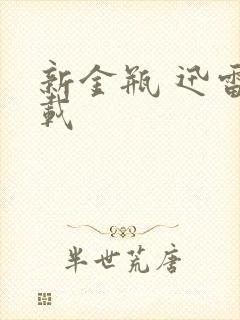 新金瓶 迅雷
载
半世荒唐